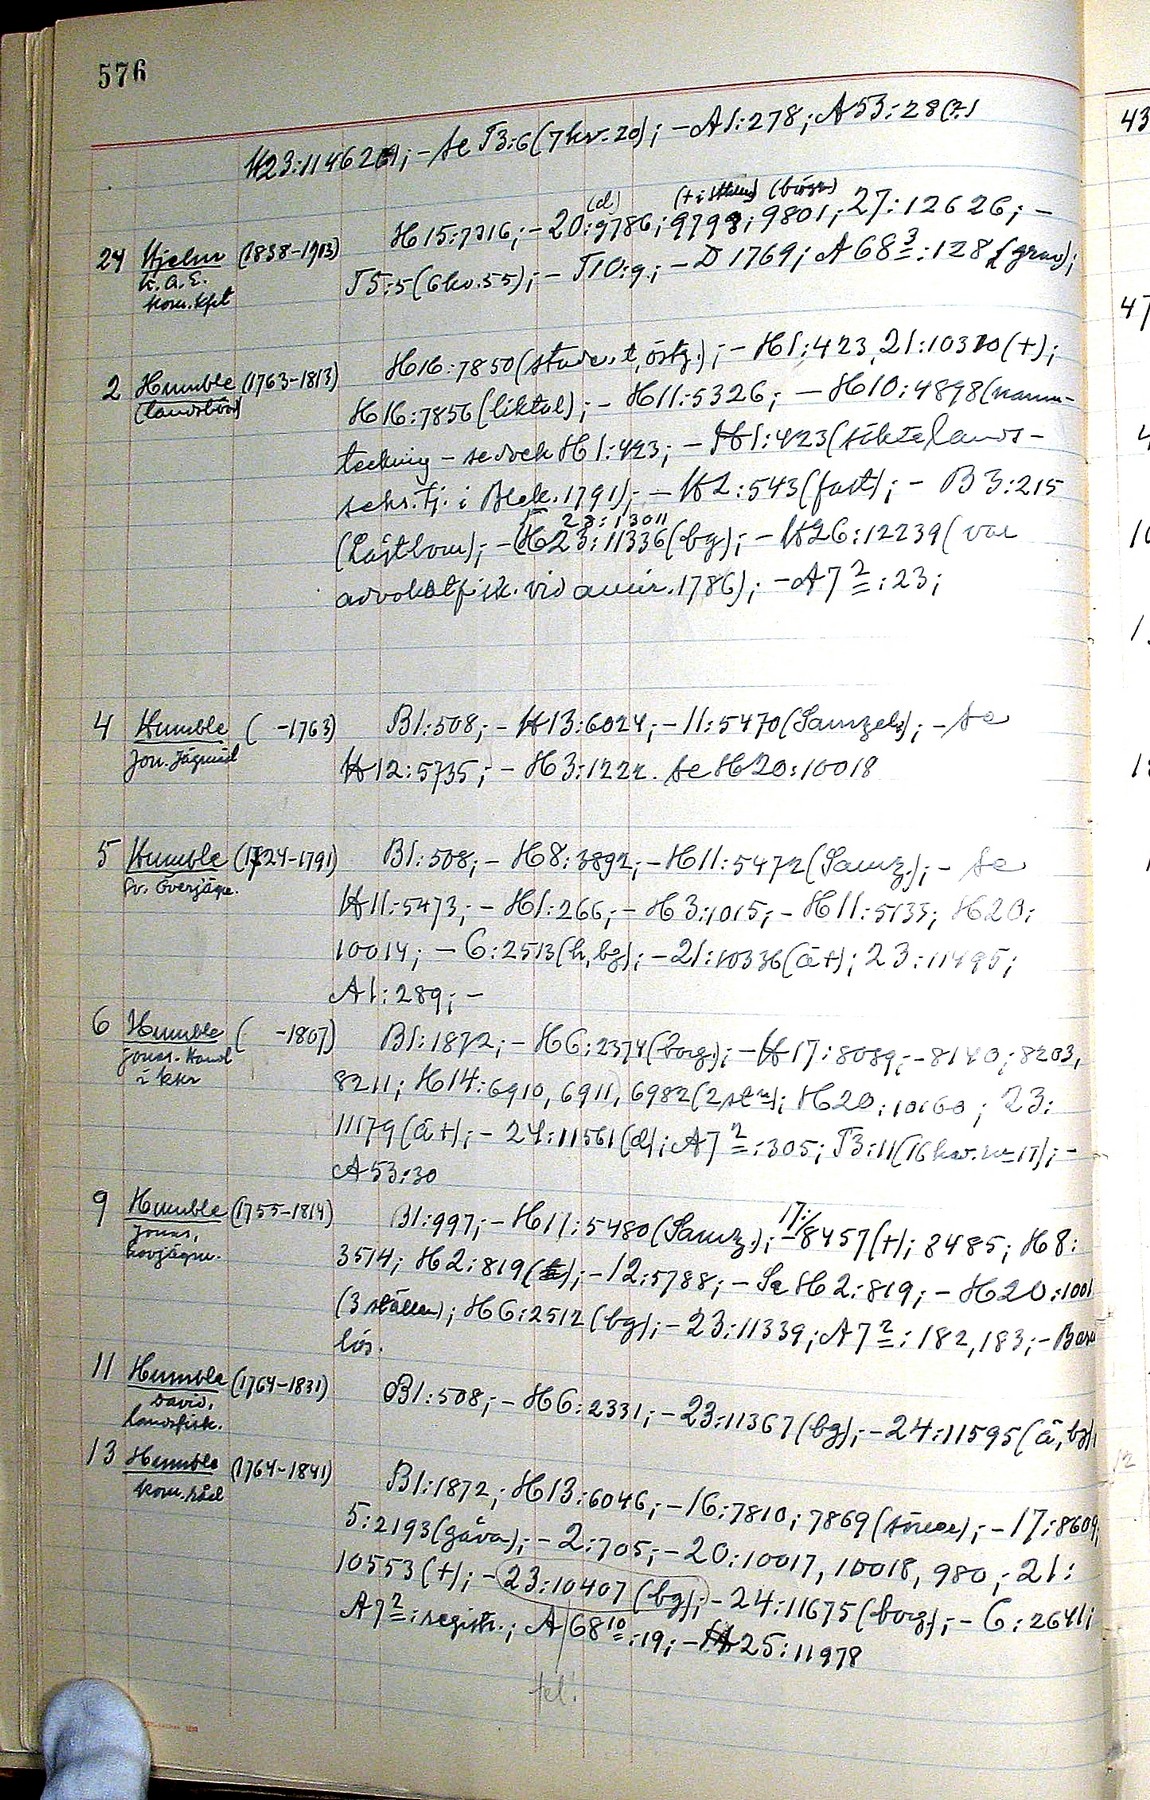 576
H23:11462; - se T3:6 (7 kv. 20); - A1:278; A53:28
(d) (bg)
24 Hjelm (1838-1913) H15:7316; - 20:9786; 9798; 9801; 27:12626; -
K.A.E. T5:5 (6 kv. 55); - T10:9; - D 1769; A 68 3:128 (grav);
kom.kpt
2 Humble (1763-1813) H16:7850 (student, östg.); - H1:423, 21:10370 (+);
(landsbörd) H16:7856 (liktal); - H11:5326; - H10:4898 (namn-
teckning - se ock H1:423; - H1:423 (sökte lands-
sekr. tj. i Blek. 1791); - H2:543 (fast); - B3:215
23:13011
(Löjtbom); - (H23:11336 (bg); - H26:12239 (var
advokatfisk. vid amir. 1786); - A7 2:23;
4 Humble ( -1763) B1:508; - H13:6024; - 11:5470 (Samzel.); - se
Jon. Jägmäst H12:5735; - H3:1222. se H20:10018
5 Humble (1724-1791) B1:508; - H8:3892; - H11:5472 (Samz.); - se
Sv. överjägm. H11:5473; - H1:266; - H3:1015; - H11:5135; H20:
10014; - 6:2513 (h, bg); - 21:10336 (å+); 23:11495;
A1:289; -
6 Humble ( -1807) B1:1872; - H6:2374 (borg.); - H17:8089; - 8140; 8203,
Jonas. Handl 8211; H14:6910, 6911, 6982 (2 st); H20:10060; 23:
i kkr 11179 (å+); - 24:11561 (d); A7 2:305; T3:11 (16 kv. nr 17); -
A53:30
9 Humble (1755-1814) B1:997; - H11:5480 (Samz.); - 17:/8457 (+); 8485; H8:
Jonas, 3514; H2:819; - 12:5788; - Se H2:819; - H20:1001
hovjägm. (3 ställen); H6:2512 (bg); - 23:11339; A7 2:182, 183; - Barn
lös.
11 Humble (1764-1831) B1:508; - H6:2331; - 23:11367 (bg); - 24:11595 (å, bg)
David,
landsfisk.
13 Humble (1764-1841) B1:1872; H13:6046; - 16:7810; 7869 (söner); - 17:8609;
kom.råd 5:2193 (gåva); - 2:705; - 20:10017, 10018, 980; - 21:
10553 (+); - 23:10407 (bg); - 24:11675 (borg); - 6:2641;
A7 2:registr.; A 68 10:19; - H25:11978
fel!